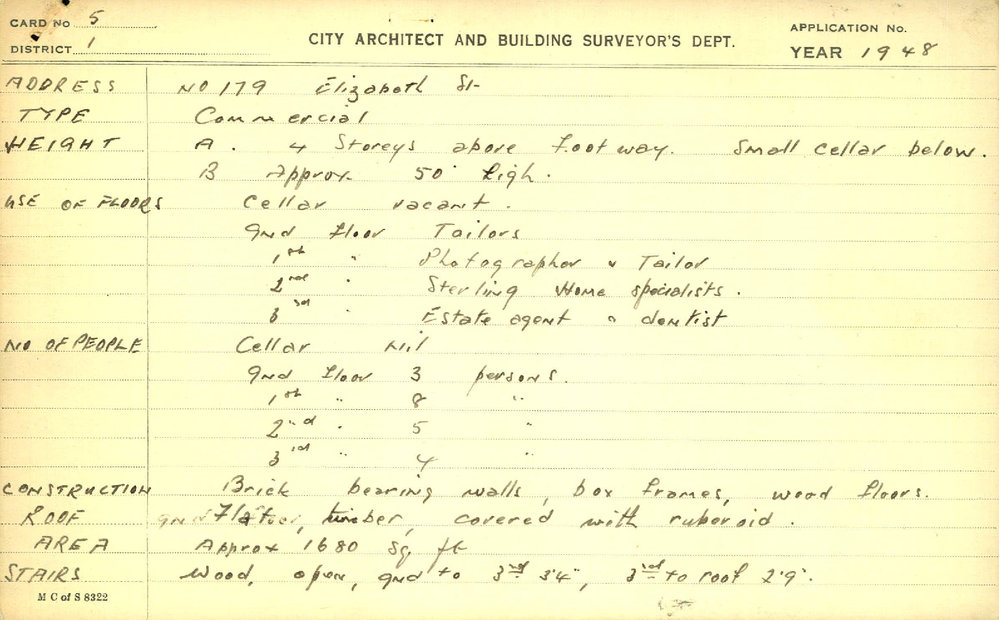 CARD No 5
DISTRICT 1
CITY ARCHITECT AND BUILDING SURVEYOR'S DEPT.
APPLICATION No.
YEAR 1948
ADDRESS No 179 Elizabeth St
TYPE Commercial
HEIGHT A. 4 Storeys above footway. Small cellar below.
B Approx 50' high.
USE OF FLOORS Cellar vacant.
Gnd floor Tailors
1st " Photographer & Tailor
2nd " Sterling Home specialists.
3rd " Estate agent & dentist
NO OF PEOPLE Cellar Nil
Gnd floor 3 persons.
1st " 8 "
2nd " 5 "
3rd " 4 "
CONSTRUCTION Brick bearing walls, box frames, wood floors.
ROOF Flat timber, covered with ruberoid.
AREA Approx 1680 Sq ft
STAIRS Wood, open, gnd to 3rd 3'4", 3rd to roof 2'9".
M C of S 8322